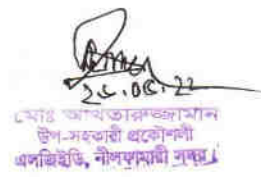 ২৫.০৫.২২
মোঃ আখতারুজ্জামান
উপ-সহকারী প্রকৌশলী
এলজিইডি, নীলফামারী সদর।